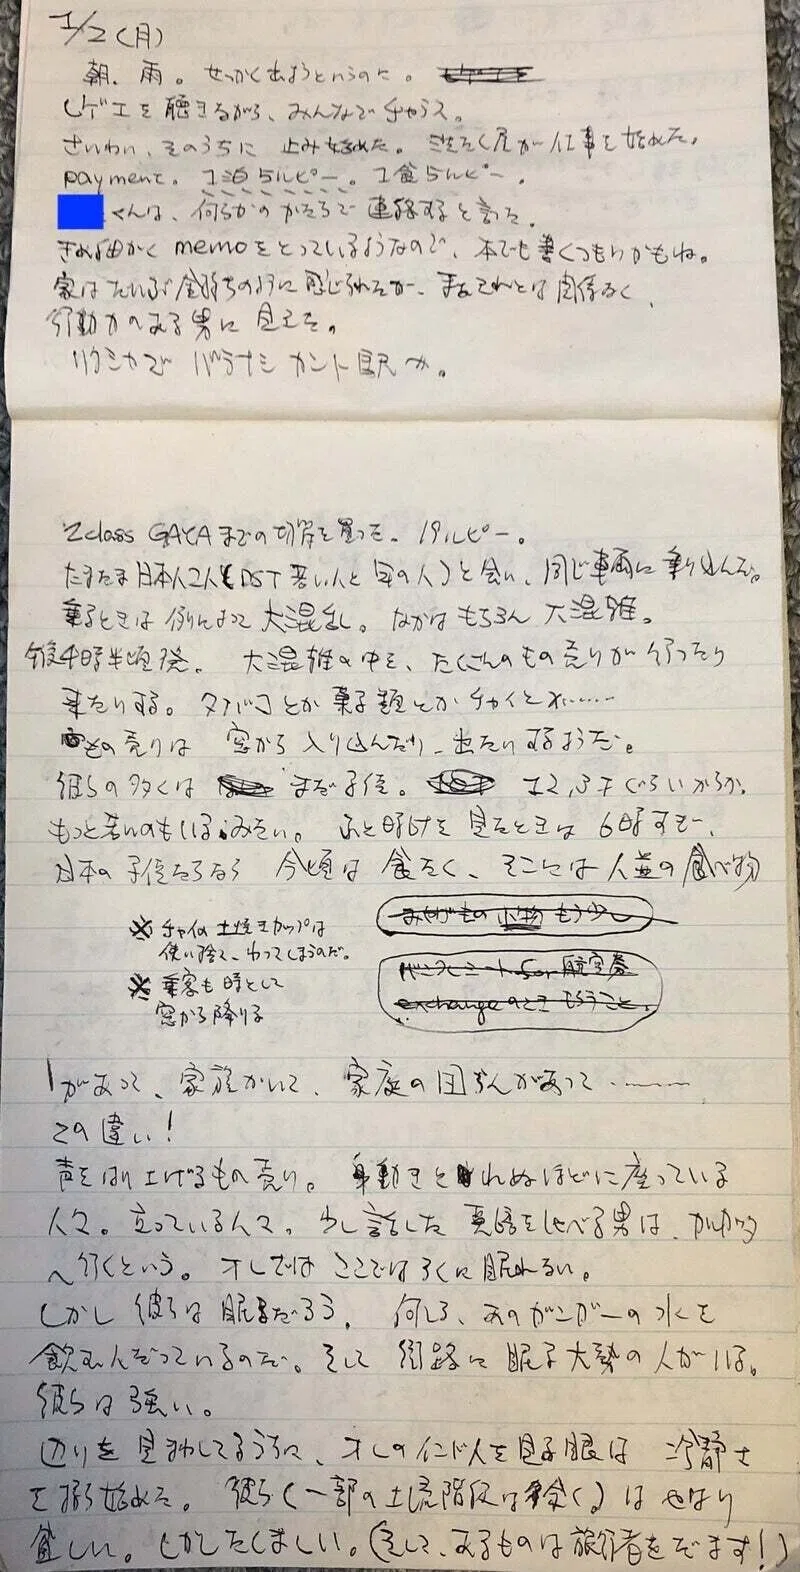 1/2(月)
朝、雨。せっかく出ようというのに。
レゲエを聴きながら、みんなでチャラス。
さいわい、そのうちに 止み始めた。洗たく屋が仕事を始めた。
payment。1泊5ルピー。1食5ルピー。
くんは、何らかのかたちで 連絡すると言った。
きめ細かく memoをとっているようなので、本でも書くつもりかもね。
家はだいぶ金持ちのように感じられたが、まあそれとは関係なく、
行動力のある男に見えた。
リクシャでバラナシ カント駅へ。
2class GAYAまでの切符を買った。19ルピー。
たまたま日本人2人(DST若い人と年の人)と会い、同じ車両に乗り込んだ。
乗るときは例によって大混乱。なかはもちろん 大混雑。
午後4時半頃発。大混雑の中を、たくさんのもの売りが行ったり
来たりする。タバコとか菓子類とかチャイとか……
もの売りは 窓から入り込んだり、出たりするようだ。
彼らの多くは まだ子供。12,3才ぐらいからか。
もっと若いのもいるみたい。ふと時計を見たときは 6時すぎ、
日本の子供たちなら 今頃は食たく、そこには人並の食べ物
※チャイの土焼きカップは
使い捨て、わってしまうのだ。
※乗客も時として
窓から降りる
みやげもの 小物 もう少し
バンクレシート for 航空券
exchangeのときもらうこと。
があって、家族がいて、家庭の団らんがあって……
この違い!
声をはり上げるもの売り。身動きとれぬほどに座っている
人々。立っている人々。少し話した英語をしゃべる男は、カルカッタ
へ行くという。オレではここではろくに眠れない。
しかし彼らは眠るだろう。何しろ、あのガンガーの水を
飲むんだっているのだ。そして街路に眠る大勢の人がいる。
彼らは強い。
辺りを見まわしてるうちに、オレのインド人を見る眼は 冷静さ
を取り始めた。彼ら(一部の上流階段は除く。)はやはり
貧しい。しかしたくましい。(そして、あるものは旅行者をだます!)